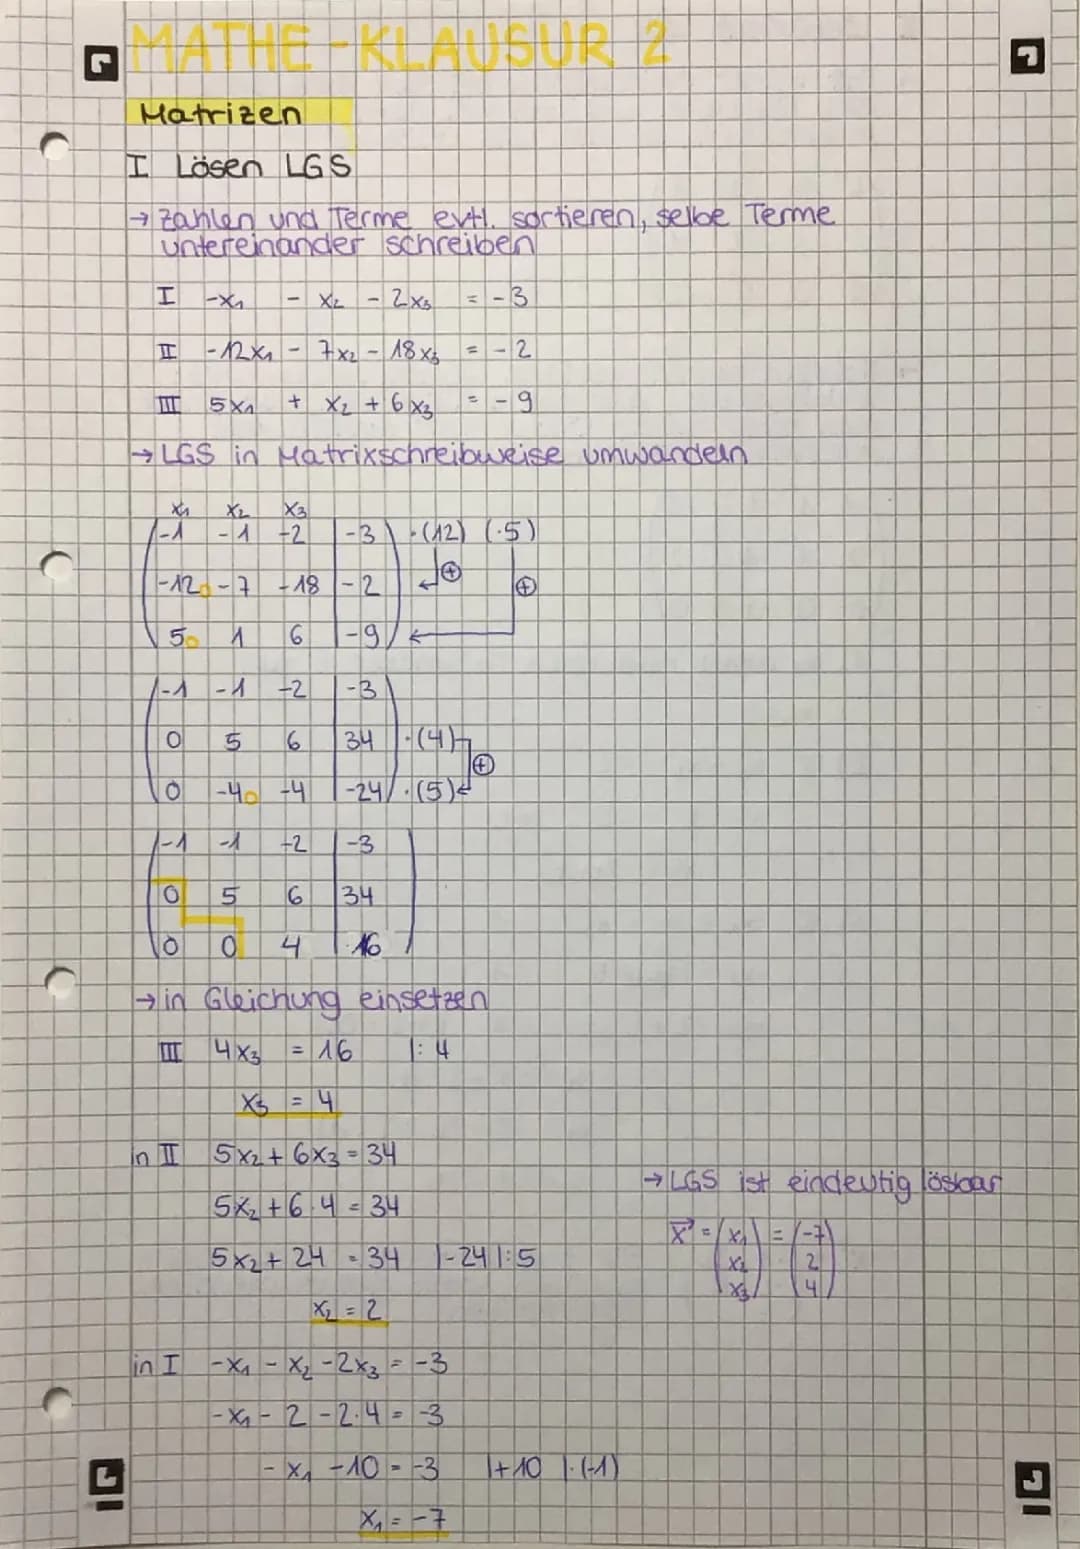 MATHE-KLAUSUR 2
Matrizen
I Lösen LGS
→ Zahlen und Terme evtl. sortieren, selbe Terme
untereinander schreiben
I -x₁ - x₂ - 2x₃ = -3
II -12x₁ - 7x₂ - 18x₃ = -2
III 5x₁ + x₂ + 6x₃ = -9
→ LGS in Matrixschreibweise umwandeln
x₁ x₂ x₃
-1 -1 -2 | -3 ·(12) (·5)
-12 -7 -18 | -2 ⊕ ⊕
5 1 6 | -9
-1 -1 -2 | -3
0 5 6 | 34 ·(4)
0 -4 -4 | -24 ·(5) ⊕
-1 -1 -2 | -3
0 5 6 | 34
0 0 4 | 16
→ in Gleichung einsetzen
III 4x₃ = 16 |: 4
x₃ = 4
in II 5x₂ + 6x₃ = 34
5x₂ + 6·4 = 34
5x₂ + 24 = 34 |-24 |:5
x₂ = 2
→ LGS ist eindeutig lösbar
x⃗ = (x₁ x₂ x₃) = (-7 2 4)
in I -x₁ - x₂ - 2x₃ = -3
-x₁ - 2 - 2·4 = -3
-x₁ - 10 = -3 |+10 |·(-1)
x₁ = -7